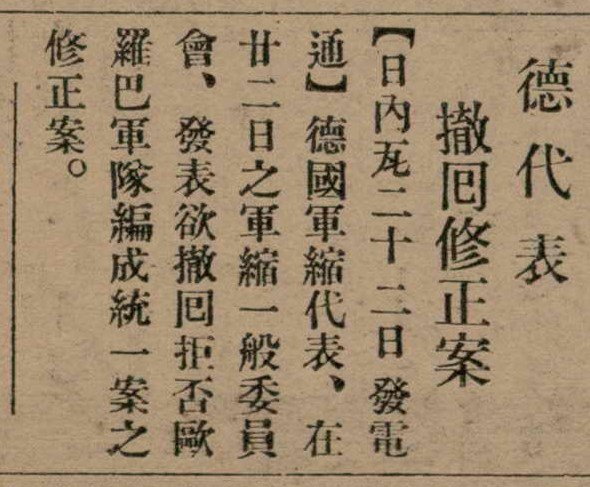 德代表
撤囘修正案
【日內瓦二十二日發電
通】德國軍縮代表、在
廿二日之軍縮一般委員
會、發表欲撤囘拒否歐
羅巴軍隊編成統一案之
修正案。